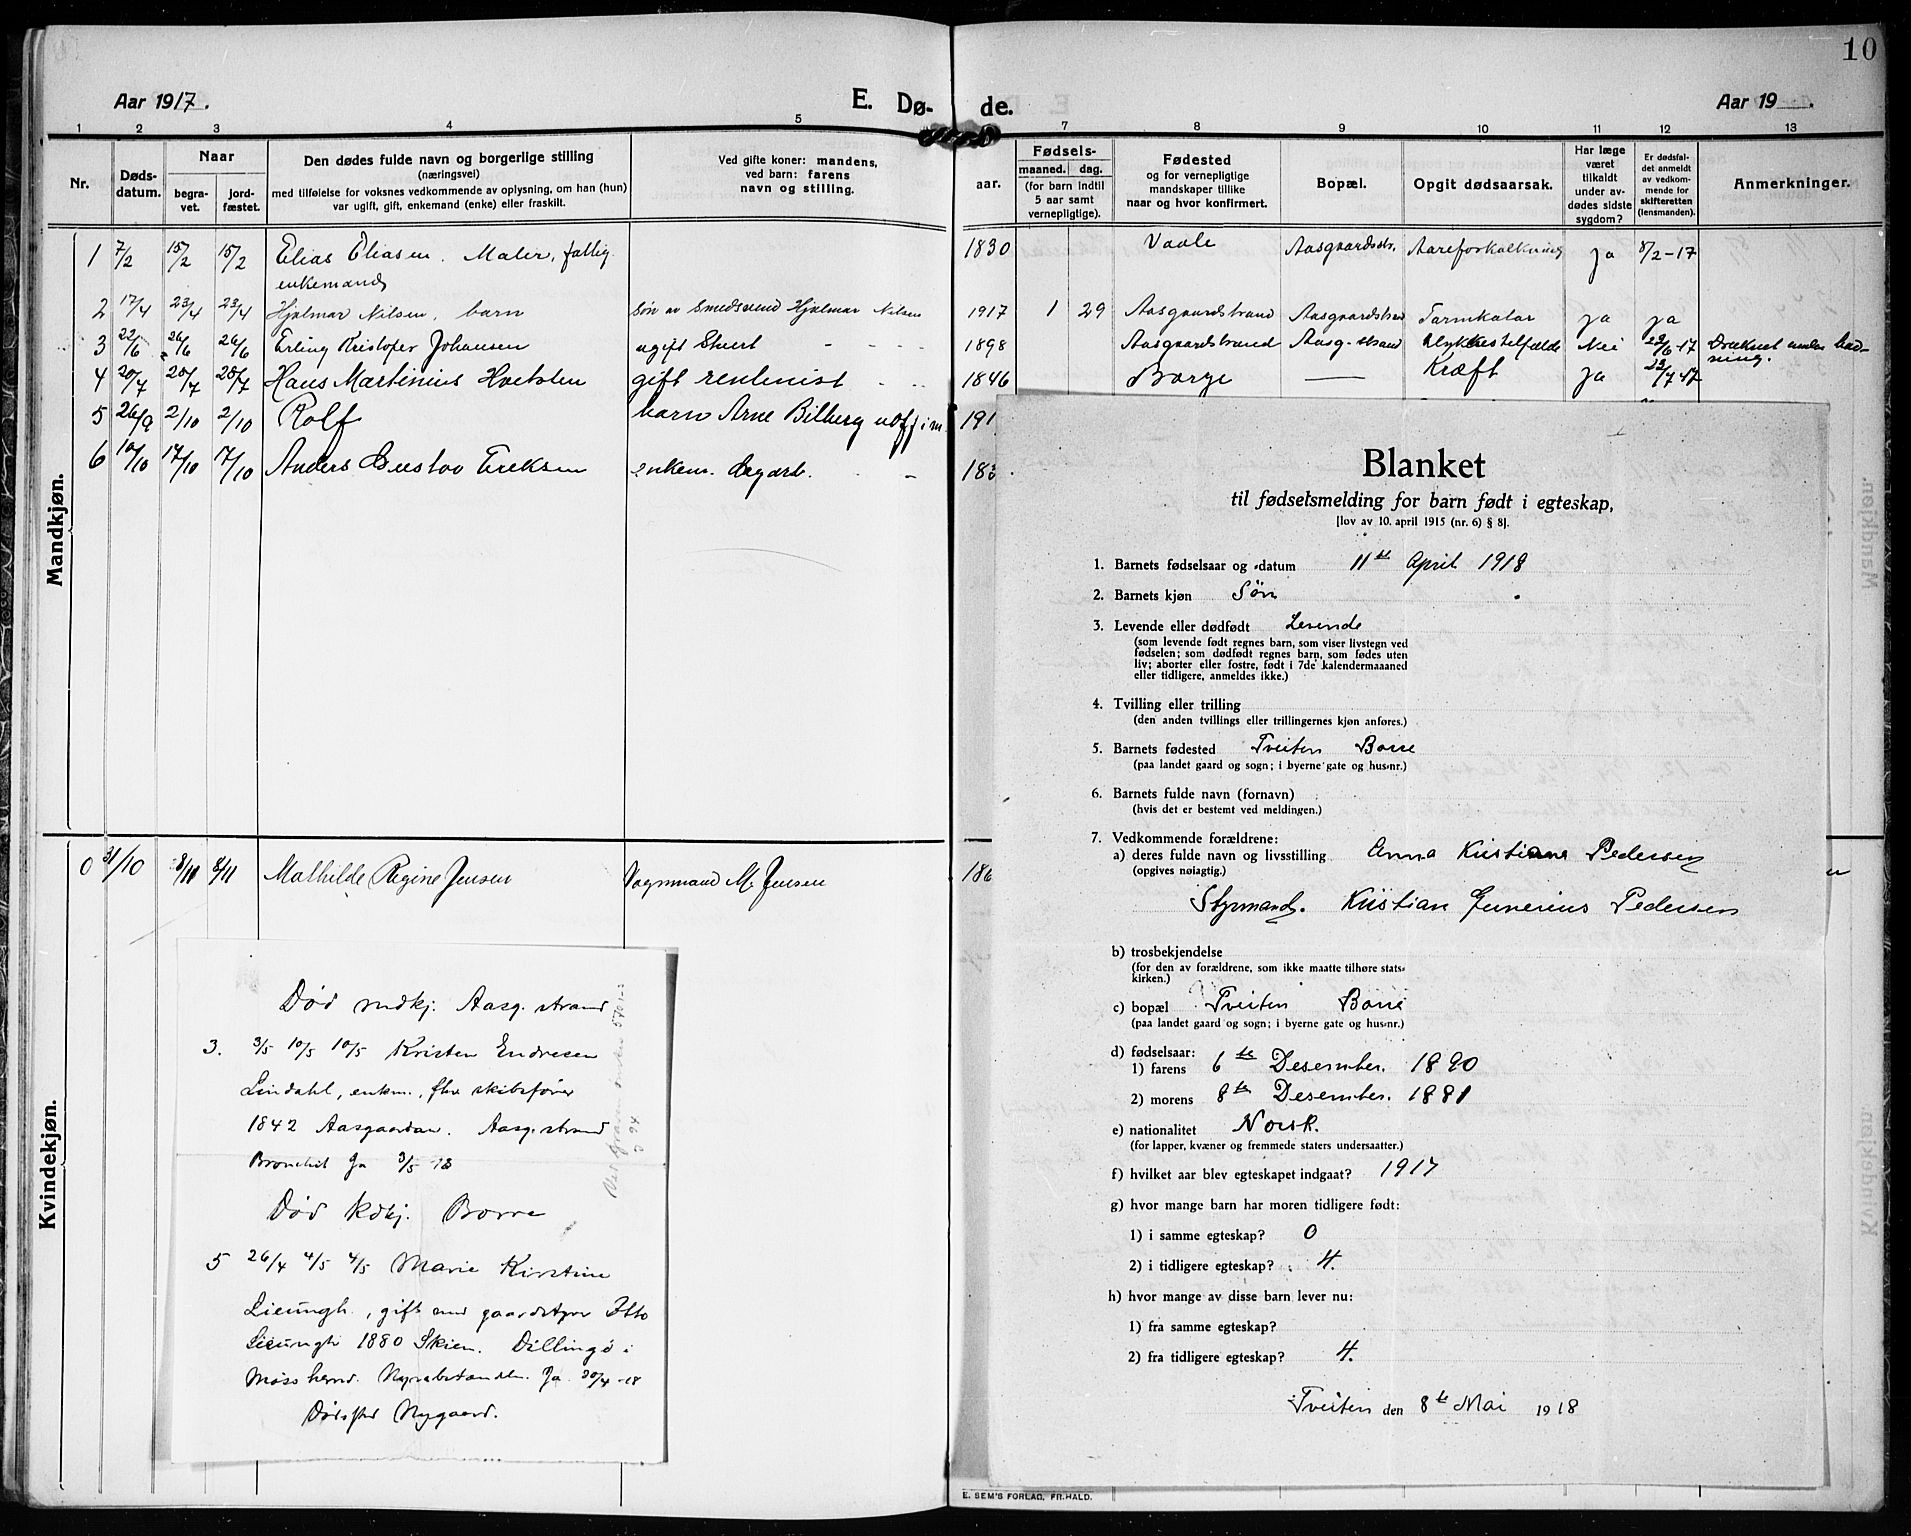 10
Aar 1917.
E. Dø- de.
Aar 19 .
1 2 3 4 5 7 8 9 10 11 12 13
Nr.
Døds-
datum.
Naar
begra-
vet.
jord-
fæstet.
Den dødes fulde navn og borgerlige stilling
(næringsvei)
med tilføielse for voksnes vedkommende av oplysning, om han (hun)
var ugift, gift, enkemand (enke) eller fraskilt.
Ved gifte koner: mandens,
ved barn: farens
navn og stilling.
aar.
Fødsels-
maaned. dag.
(for barn indtil
5 aar samt
vernepligtige).
Fødested
og for vernepligtige
mandskaper tillike
naar og hvor konfirmert.
Bopæl.
Opgit dødsaarsak.
Har læge
været
tilkaldt
under av-
dødes sidste
sygdom?
Er dødsfal-
det anmeldt
av vedkom-
mende for
skifteretten
(lensmanden).
Anmerkninger.
Mandkjøn.
1 7/2 15/2 15/2 Elias Eliasen. Maler, fattig 1830 Vaale Aasgaardsstr. Aareforkalkning Ja 8/2-17
enkemand
2 17/4 23/4 23/4 Hjalmar Nilsen, barn Søn av Smedsvend Hjalmar Nilsen 1917 1 29 Aasgaardstrand Aasgaardstrand Tarmkatar Ja Ja
3 22/6 26/6 26/6 Erling Kristofer Johansen ugift Stuert 1898 Aasgaardstrand Aasg.strand Ulykkestilfælde Nei 23/6-17 Druknet under bad-
ning.
4 20/7 28/7 Hans Martinius gift rentenist 1846 Borge — Kræft Ja 17
5 26/9 2/10 2/10 Rolf barn Arne Bilberg 191
6 10/10 17/10 17/10 Anders Gustav Eriksen enkem. 183
Kvindekjøn.
31/10 8/11 8/11 Mathilde Regine Jensen Vognmand M. Jensen 186
Død mdkj. Aasg.strand
3. 3/5 10/5 10/5 Kristen Endresen
Lindahl, enkm., fhv skibsfører
1842 Aasgaardstr. Aasg.strand
Bronchit Ja 3/5-18
Død Kdkj. Borre
5 26/4 4/5 4/5 Marie Kirstine
Lieungh, gift med gaardstyrer Otto
Lieungh 1880 Skien. Dillingø i
Moss herred. Ja 30/4-18
Dødssted Nygaard.
Blanket
til fødselsmelding for barn født i egteskap,
[lov av 10. april 1915 (nr. 6) § 8].
1. Barnets fødselsaar og -datum 11te April 1918
2. Barnets kjøn Søn
3. Levende eller dødfødt Levende
(som levende født regnes barn, som viser livstegn ved
fødselen; som dødfødt regnes barn, som fødes uten
liv; aborter eller fostre, født i 7de kalendermaaaned
eller tidligere, anmeldes ikke.)
4. Tvilling eller trilling
(den anden tvillings eller trillingernes kjøn anføres.)
5. Barnets fødested Tveiten Borre
(paa landet gaard og sogn; i byerne gate og hus-nr.)
6. Barnets fulde navn (fornavn)
(hvis det er bestemt ved meldingen.)
7. Vedkommende forældrene:
a) deres fulde navn og livsstilling Anna Kristiane Pedersen
(opgives nøiagtig.)
Styrmand. Kristian Gunerius Pedersen
b) trosbekjendelse
(for den av forældrene, som ikke maatte tilhøre stats-
kirken.)
c) bopæl Tveiten Borre
(paa landet gaard og sogn; i byerne gate og hus-nr.)
d) fødselsaar:
1) farens 6te Desember. 1890
2) morens 8te Desember. 1881
e) nationalitet Norsk.
(for lapper, kvæner og fremmede staters undersaatter.)
f) hvilket aar blev egteskapet indgaat? 1917
g) hvor mange barn har moren tidligere født:
1) i samme egteskap? 0
2) i tidligere egteskap? 4.
h) hvor mange av disse barn lever nu:
1) fra samme egteskap?
2) fra tidligere egteskap? 4.
Tveiten den 8te Mai 1918
E. SEM'S FORLAG, FR.HALD.